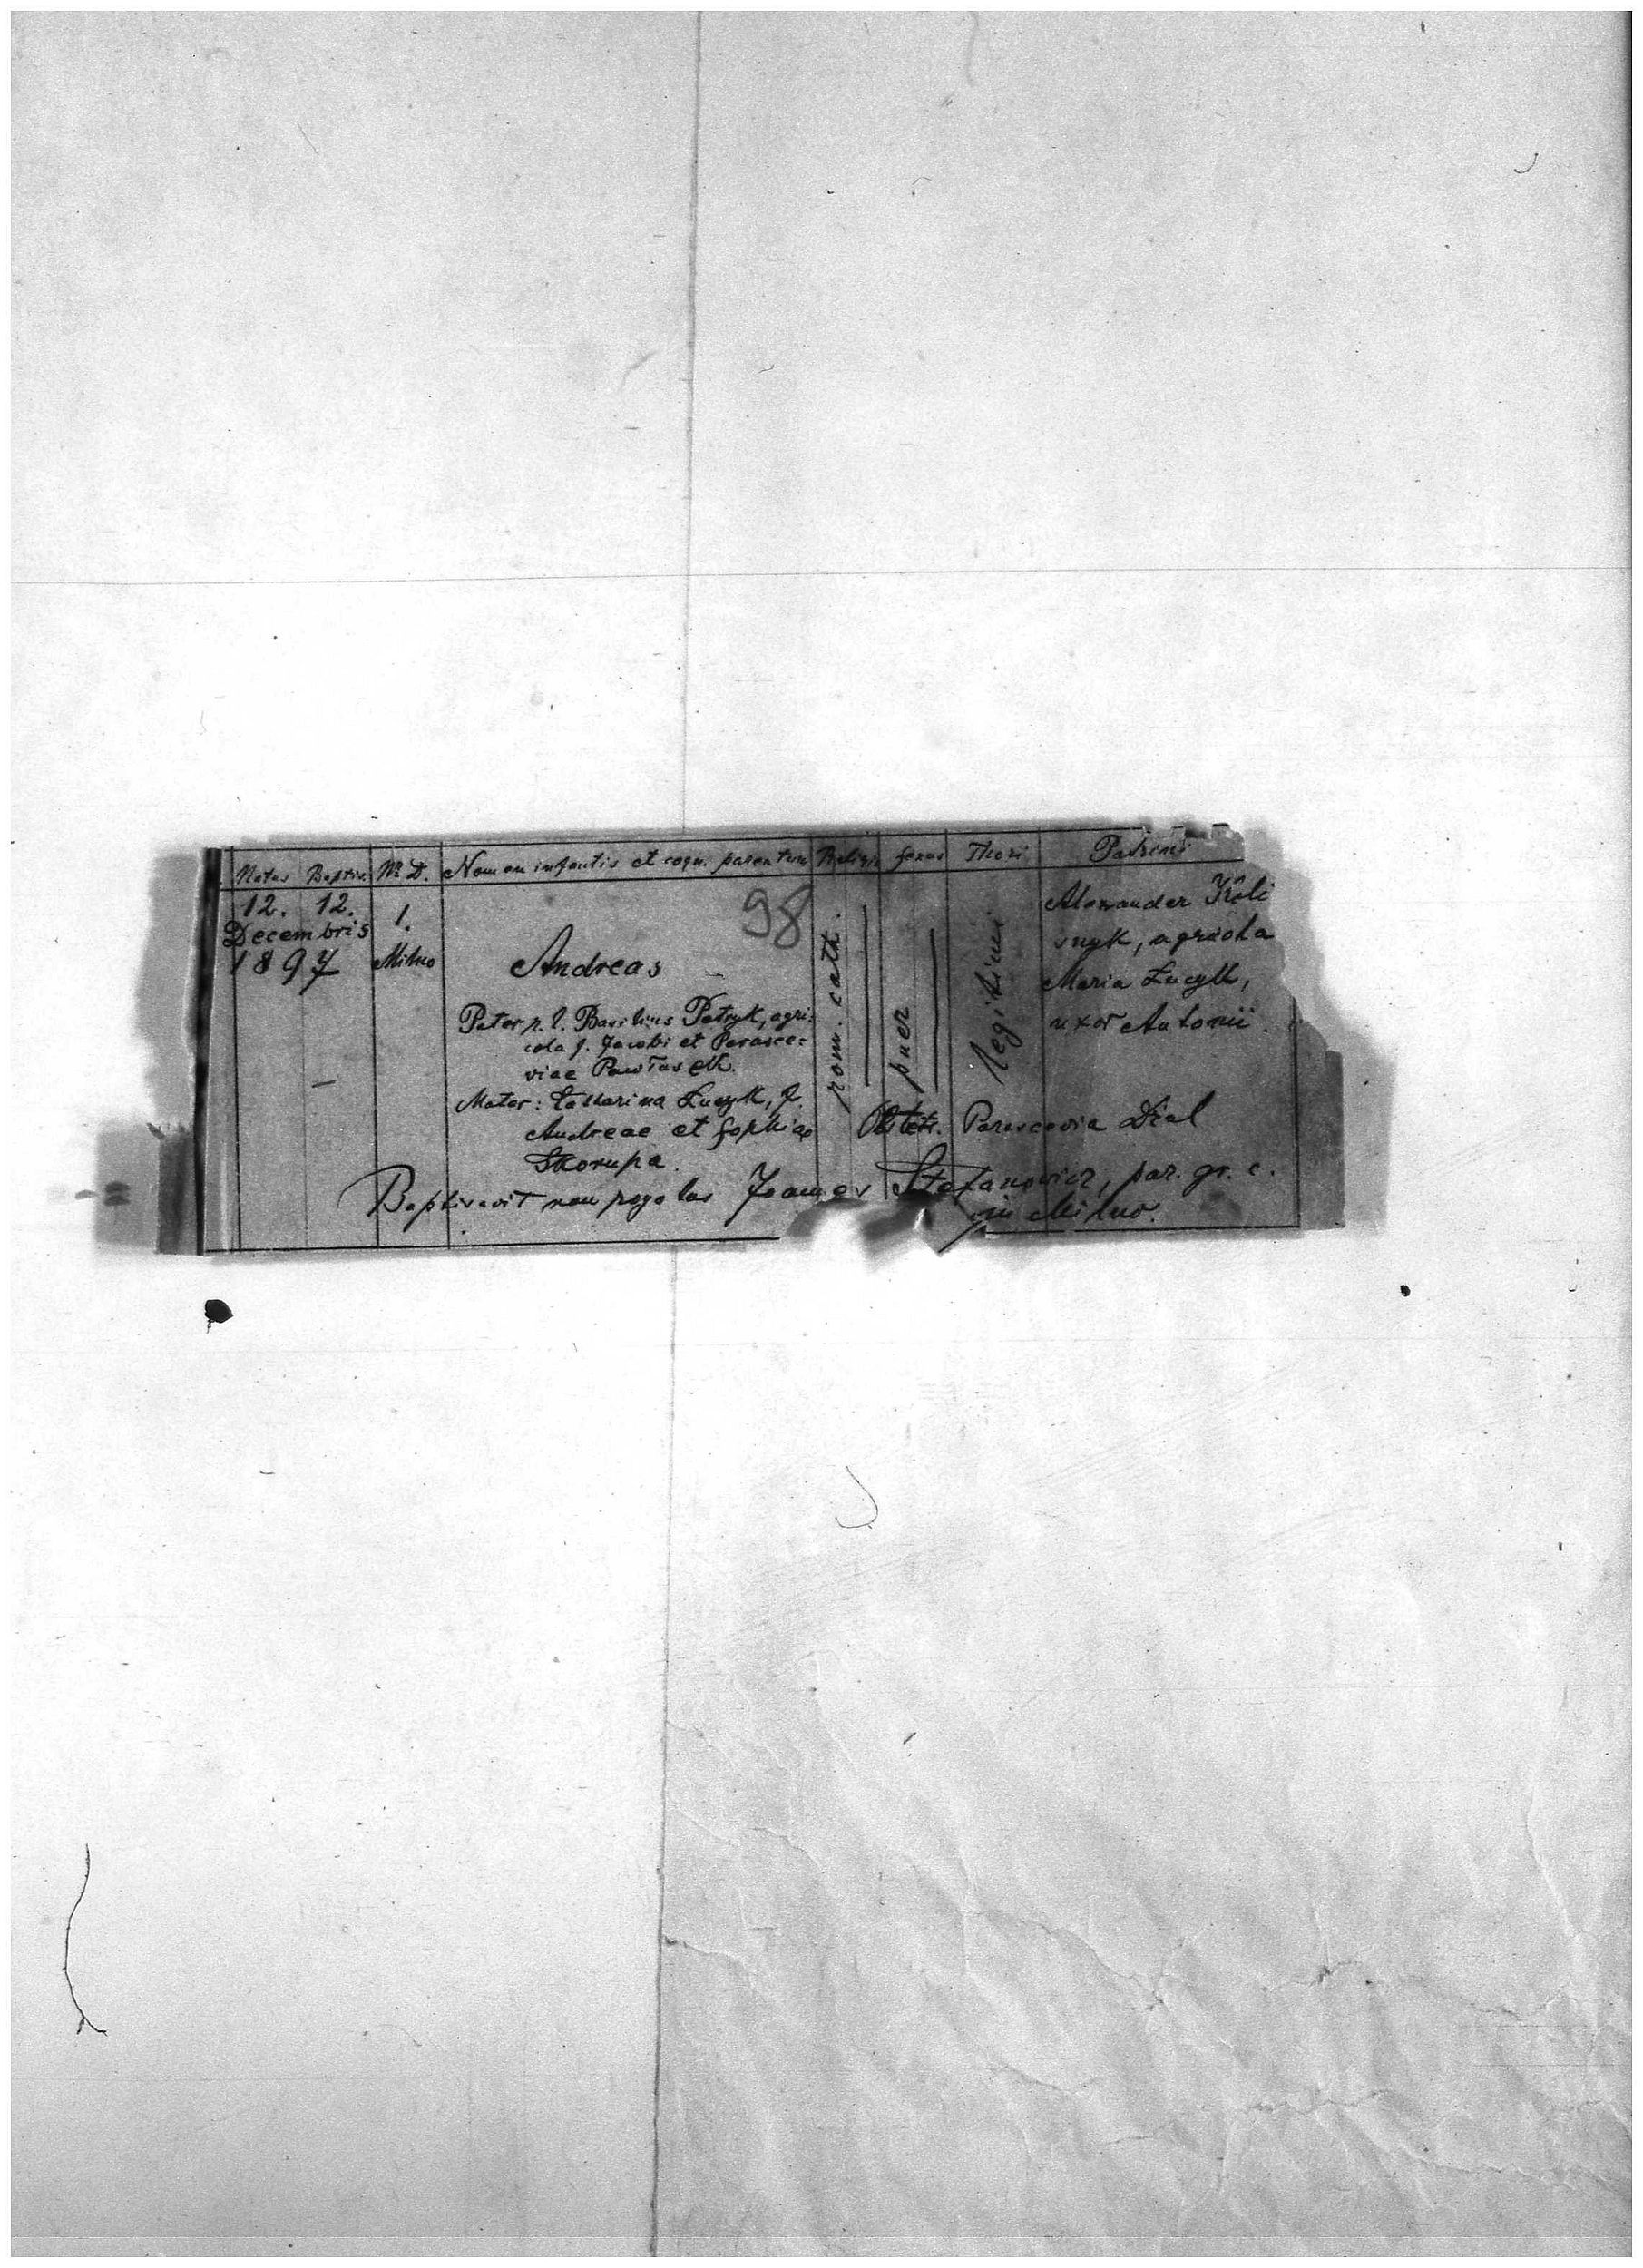 Natus Baptis. N. D. Nomen infantis et cogn. parentum Religio sexus Thori Patrini
12. 12.
Decembris
1897
1.
Milno
98
Andreas
Pater r. l. Basilius Patryk, agri=
cola f. Jacobi et Parasce=
viae Pawłus
Mater: Catharina Łucyk, f.
Andreae et Sophiae
Skorupa.
rom. cath.
puer
legitimi
Alexander Króli
snyk, agricola
Maria Łucyk,
uxor Antonii.
Obstetr. Parascevia Dżal
Baptisavit non rogatus Joannes Stefanowicz, par. gr. c.
in Milno.